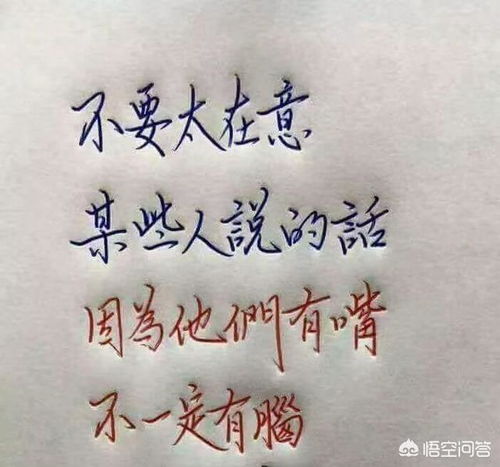 不要太在意
某些人說的話
因為他們有嘴
不一定有腦
悟空问答